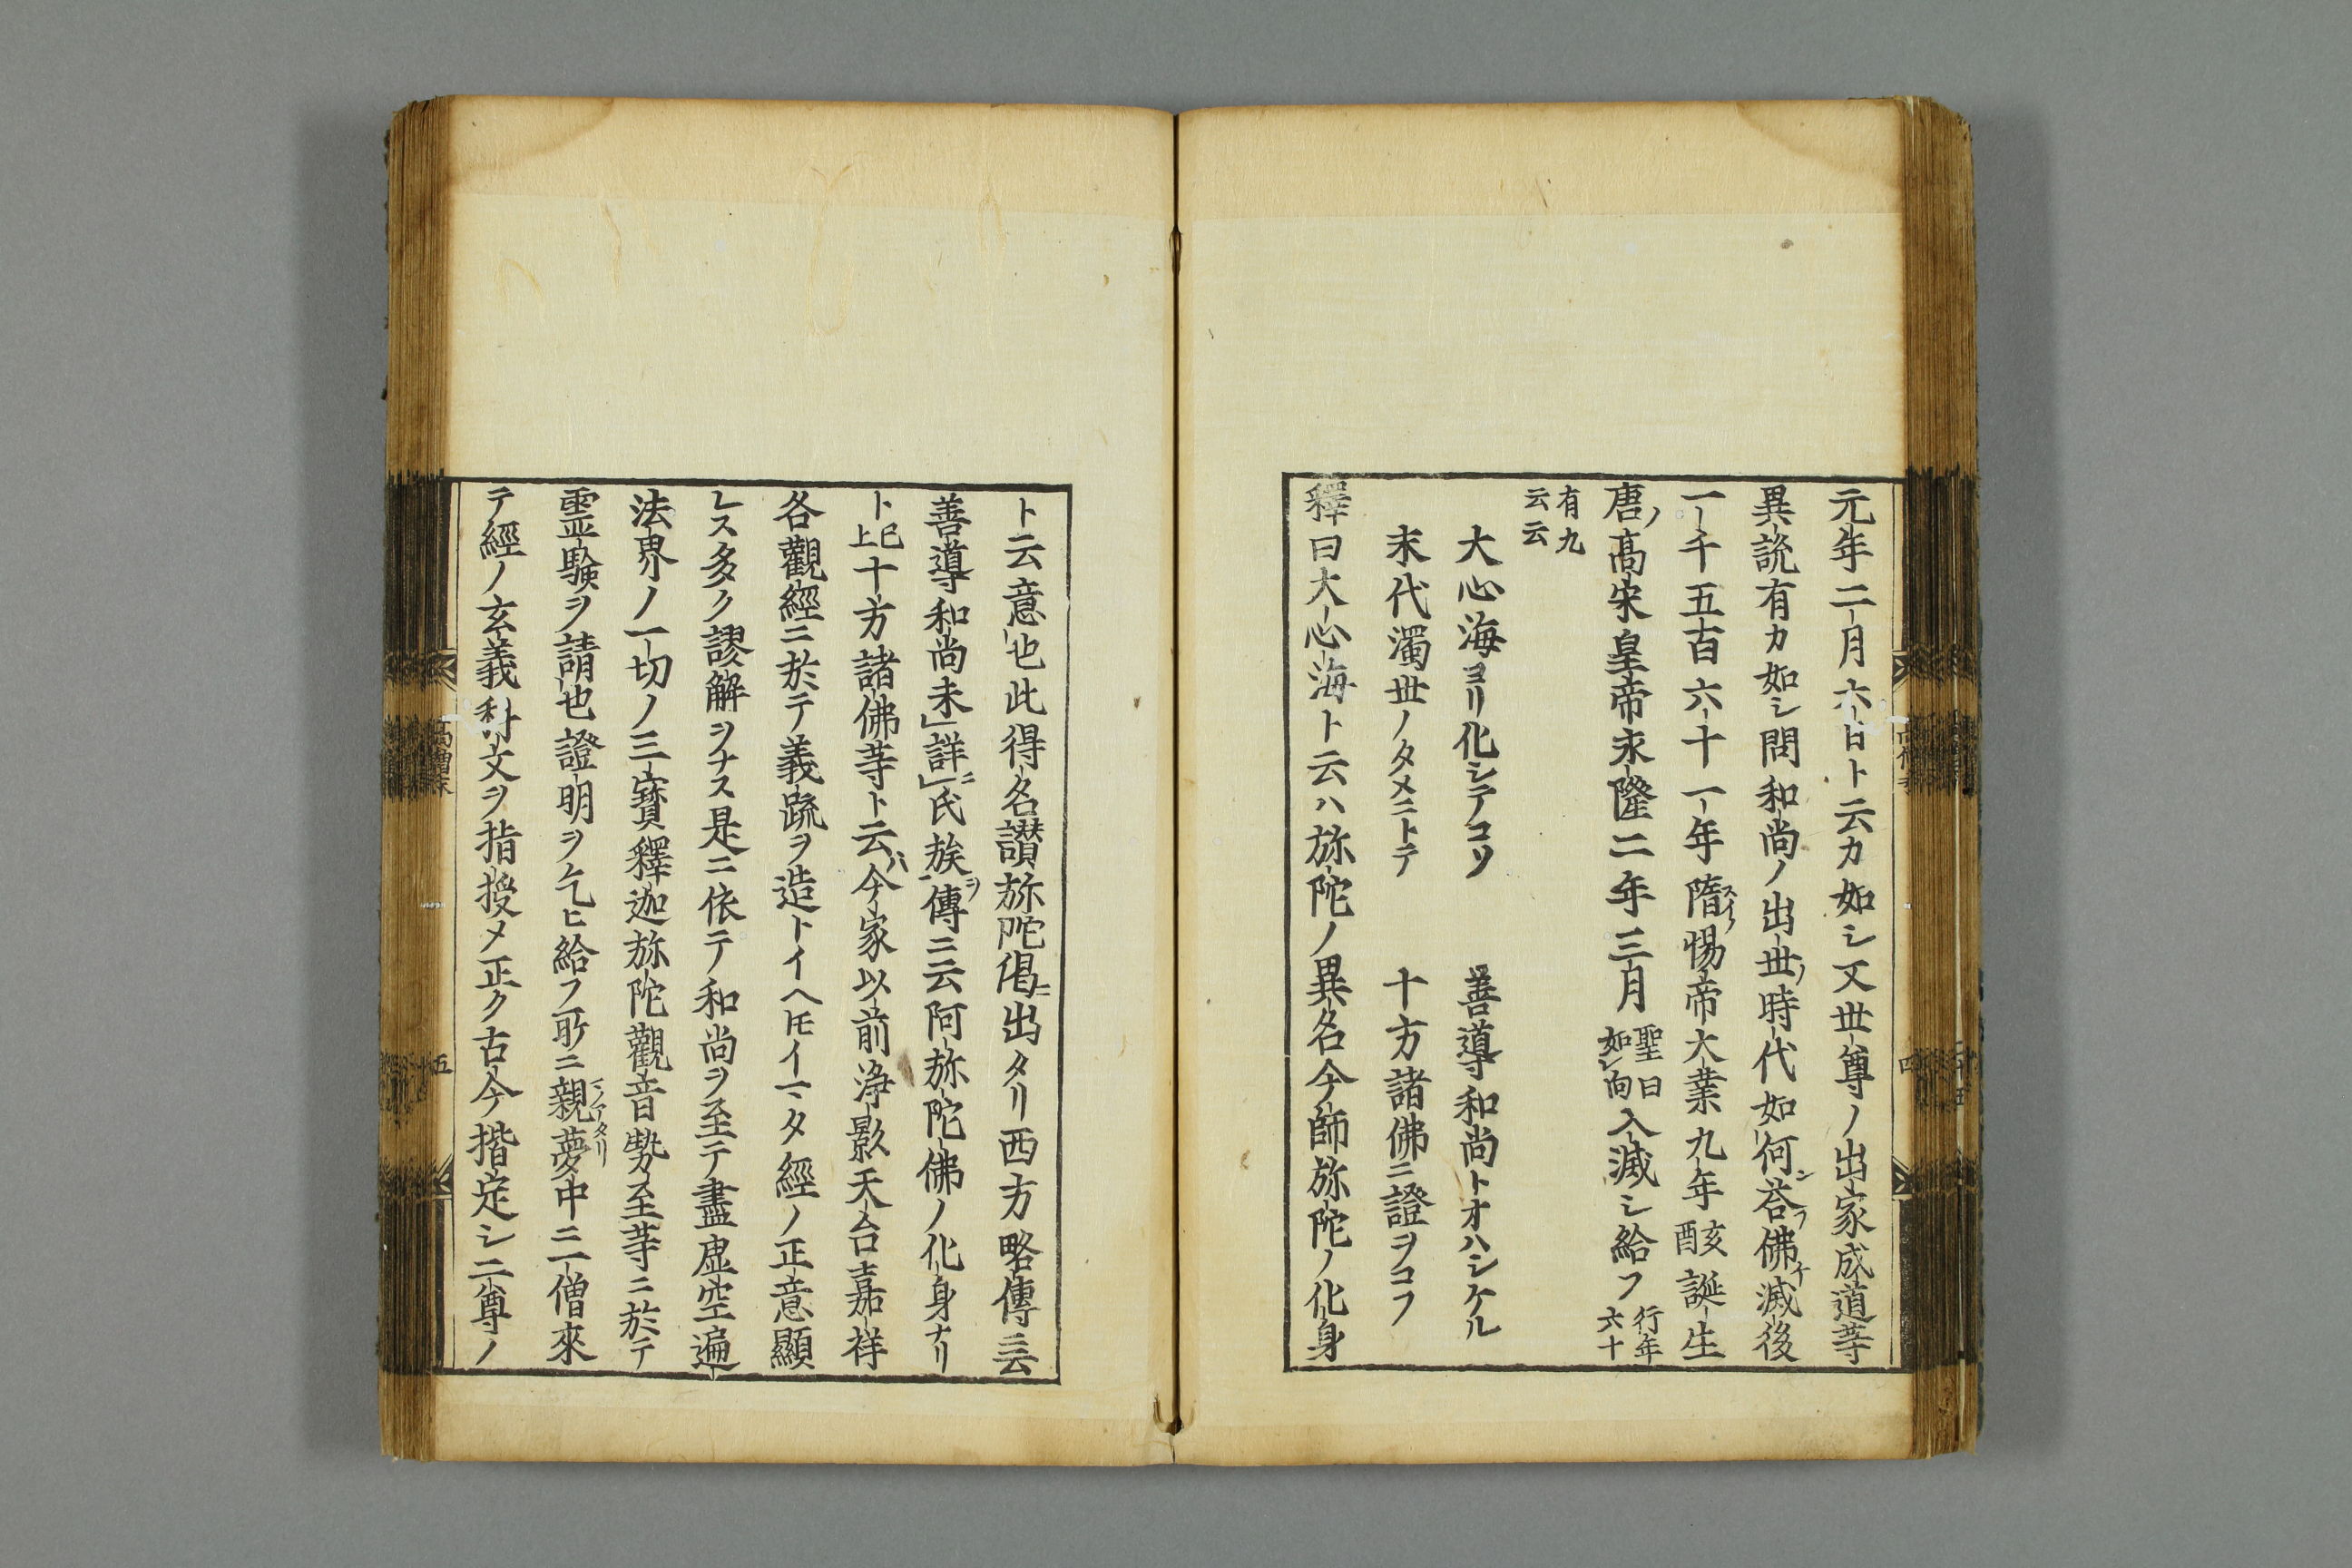 元年二月六日ト云カ如シ又世尊ノ出家成道等
異說有カ如シ問和尚ノ出世ノ時代如何シ荅フ佛チ滅後
一千五百六十一年隋スイノ惕帝大業九年酉亥誕生
唐ノ髙宋皇帝永隆二年三月聖日如シ向入滅シ給フ行年六十
有九云云
大心海ヨリ化シテコソ 善導和尚トオハシケル
末代濁世ノタメニトテ 十方諸佛ニ證ヲコフ
釋曰大心海ト云ハ旀陀ノ異名今師旀陀ノ化身
ト云意也此得名讃旀陀偈ニ出タリ西方略傳ニ云
善導和尚未詳ニ氏族ヲ傳ニ云阿旀陀佛ノ化身ナリ
ト已上十方諸佛等ト云ハ今家以前浄影天台嘉祥
各觀經ニ於テ義疏ヲ造トイヘ𪜈イマタ經ノ正意顯
レス多ク謬解ヲナス是ニ依テ和尚ヲ至テ盡虚空遍
法界ノ一切ノ三寳釋迦旀陀觀音勢至等ニ於テ
霊驗ヲ請也證明ヲ乞ヒ給フ所ニ親マノアタリ夢中ニ一僧來
テ經ノ玄義科文ヲ指授メ正ク古今揩定シ二尊ノ